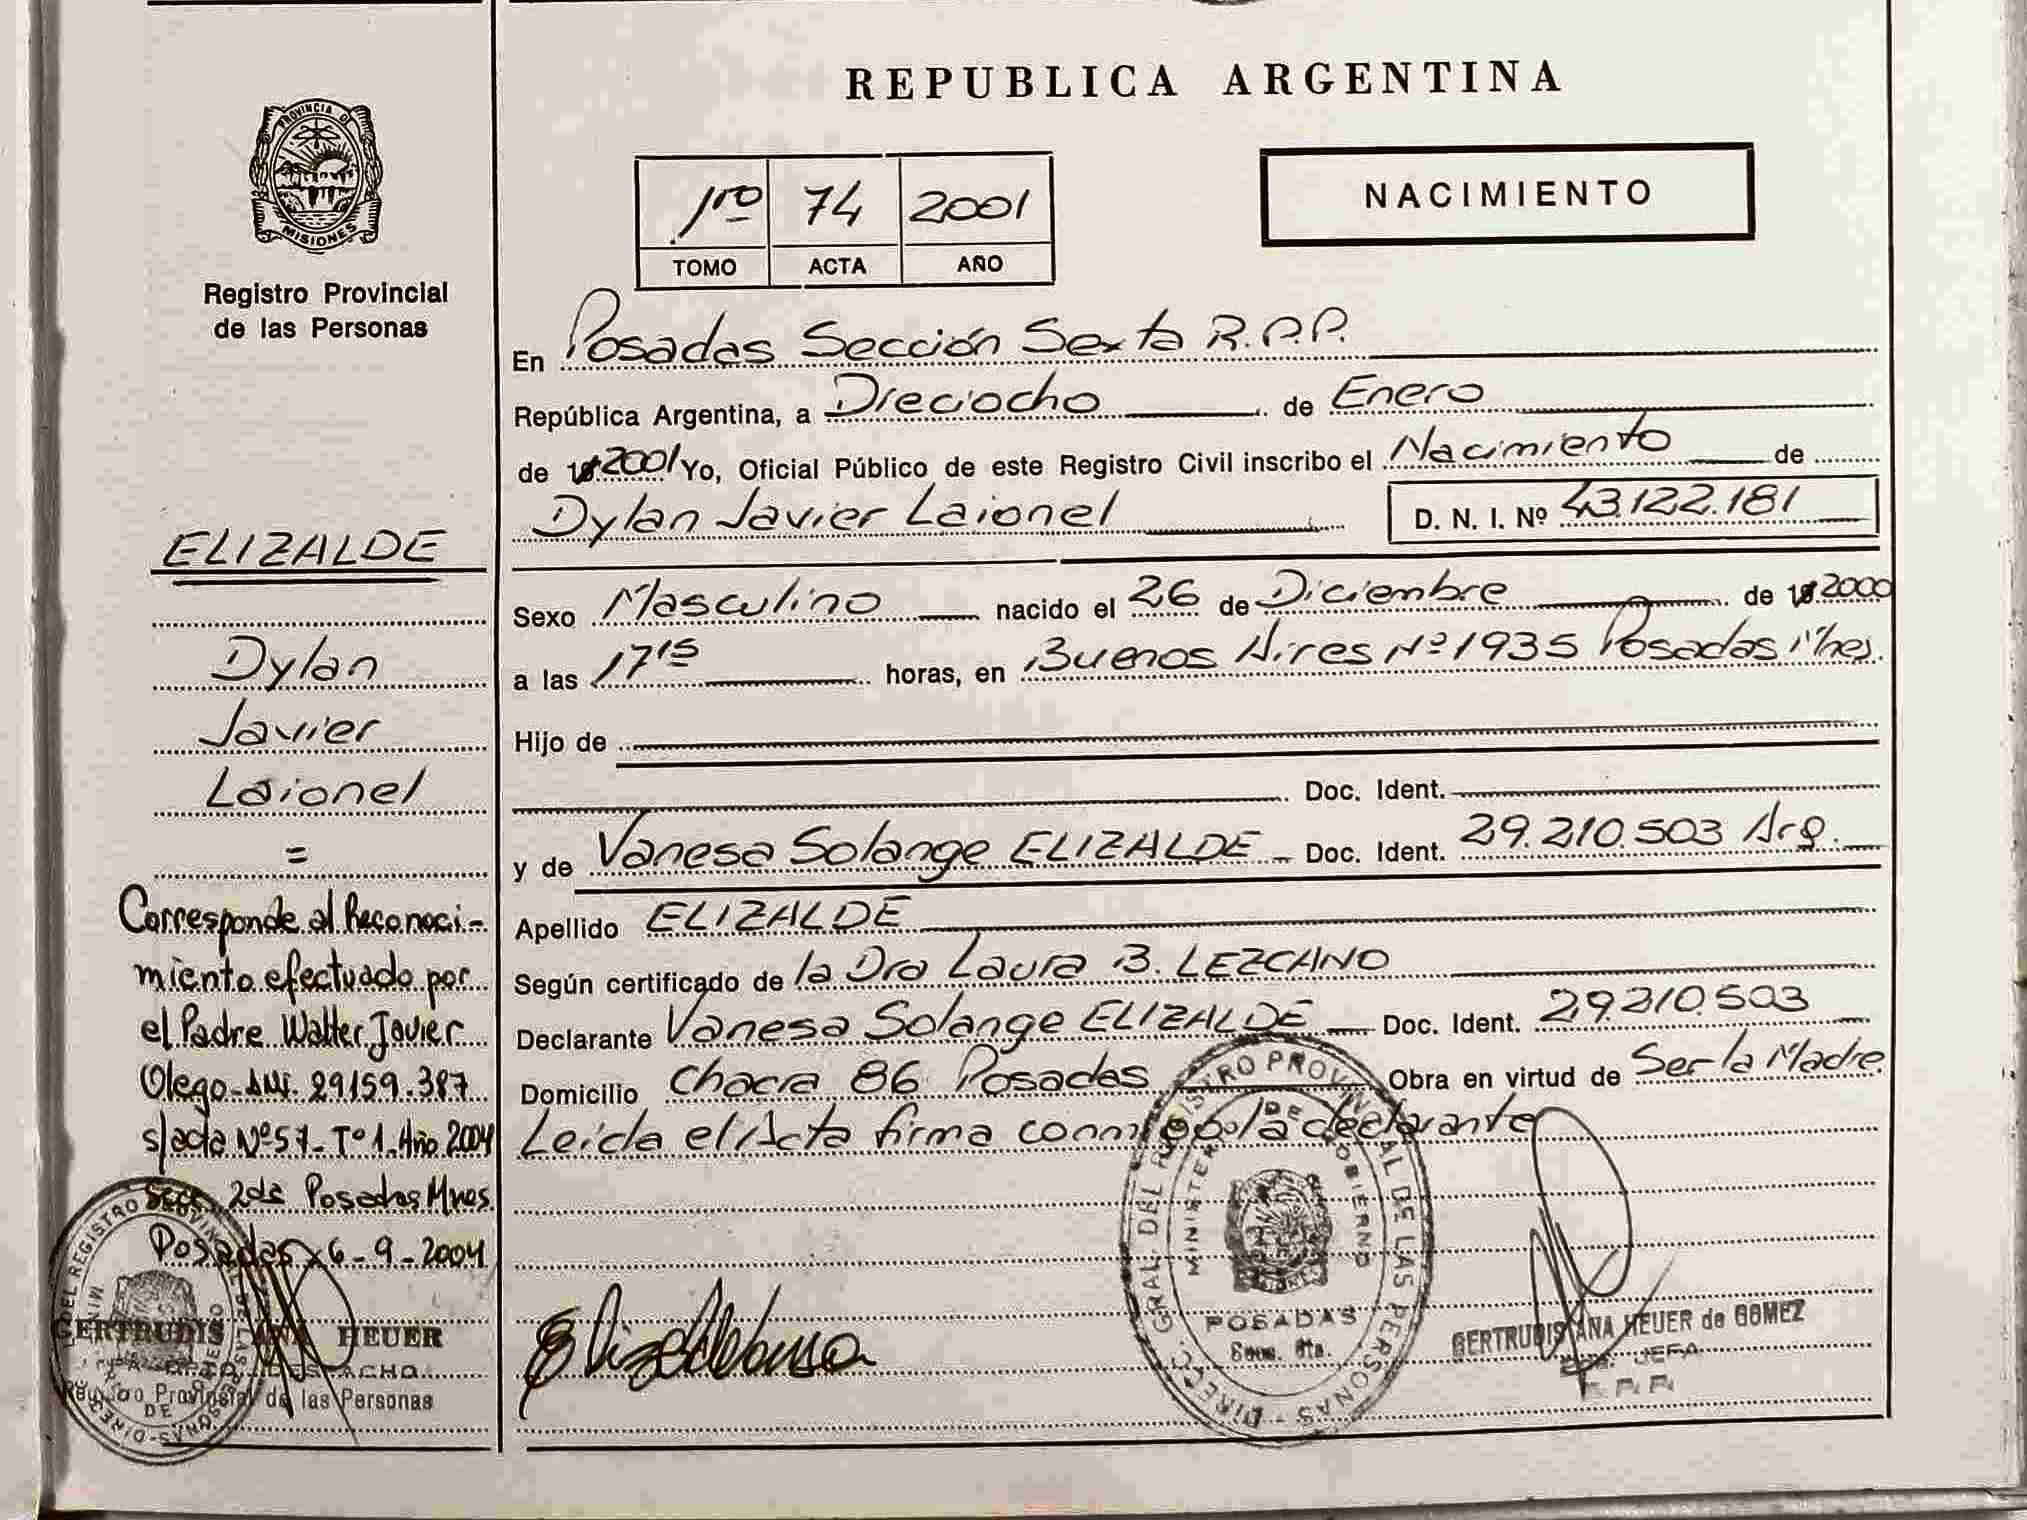 REPUBLICA ARGENTINA
PROVINCIA DE
MISIONES
Registro Provincial
de las Personas
1ro 74 2001
TOMO ACTA AÑO
NACIMIENTO
En Posadas Sección Sexta R.P.P.
República Argentina, a Dieciocho de Enero
de 2001 Yo, Oficial Público de este Registro Civil inscribo el Nacimiento de
Dylan Javier Laionel D. N. I. Nº 43.122.181
Sexo Masculino nacido el 26 de Diciembre de 2000
a las 17 15 horas, en Buenos Aires Nº 1935 Posadas Mnes.
Hijo de
Doc. Ident.
y de Vanesa Solange ELIZALDE Doc. Ident. 29.210.503 Arg.
Apellido ELIZALDE
Según certificado de la Dra Laura B. LEZCANO
Declarante Vanesa Solange ELIZALDE Doc. Ident. 29.210.503
Domicilio Chacra 86 Posadas Obra en virtud de Ser la Madre
Leída el Acta firma conmigo la declarante
ELIZALDE
Dylan
Javier
Laionel
=
Corresponde al Reconoci-
miento efectuado por
el Padre Walter Javier
Olego - DNI. 29159.387
s/acta Nº 57 - Tº 1. Año 2004
Secc. 2da Posadas Mnes.
Posadas, 6-9-2004
GERTRUDIS ANA HEUER
DESPACHO
Registro Provincial de las Personas
DIREC. GRAL DEL REGISTRO PROVINCIAL DE LAS PERSONAS
MINISTERIO DE GOBIERNO
POSADAS
Secc. 6ta.
GERTRUDIS ANA HEUER de GOMEZ
JEFA
R.P.P.